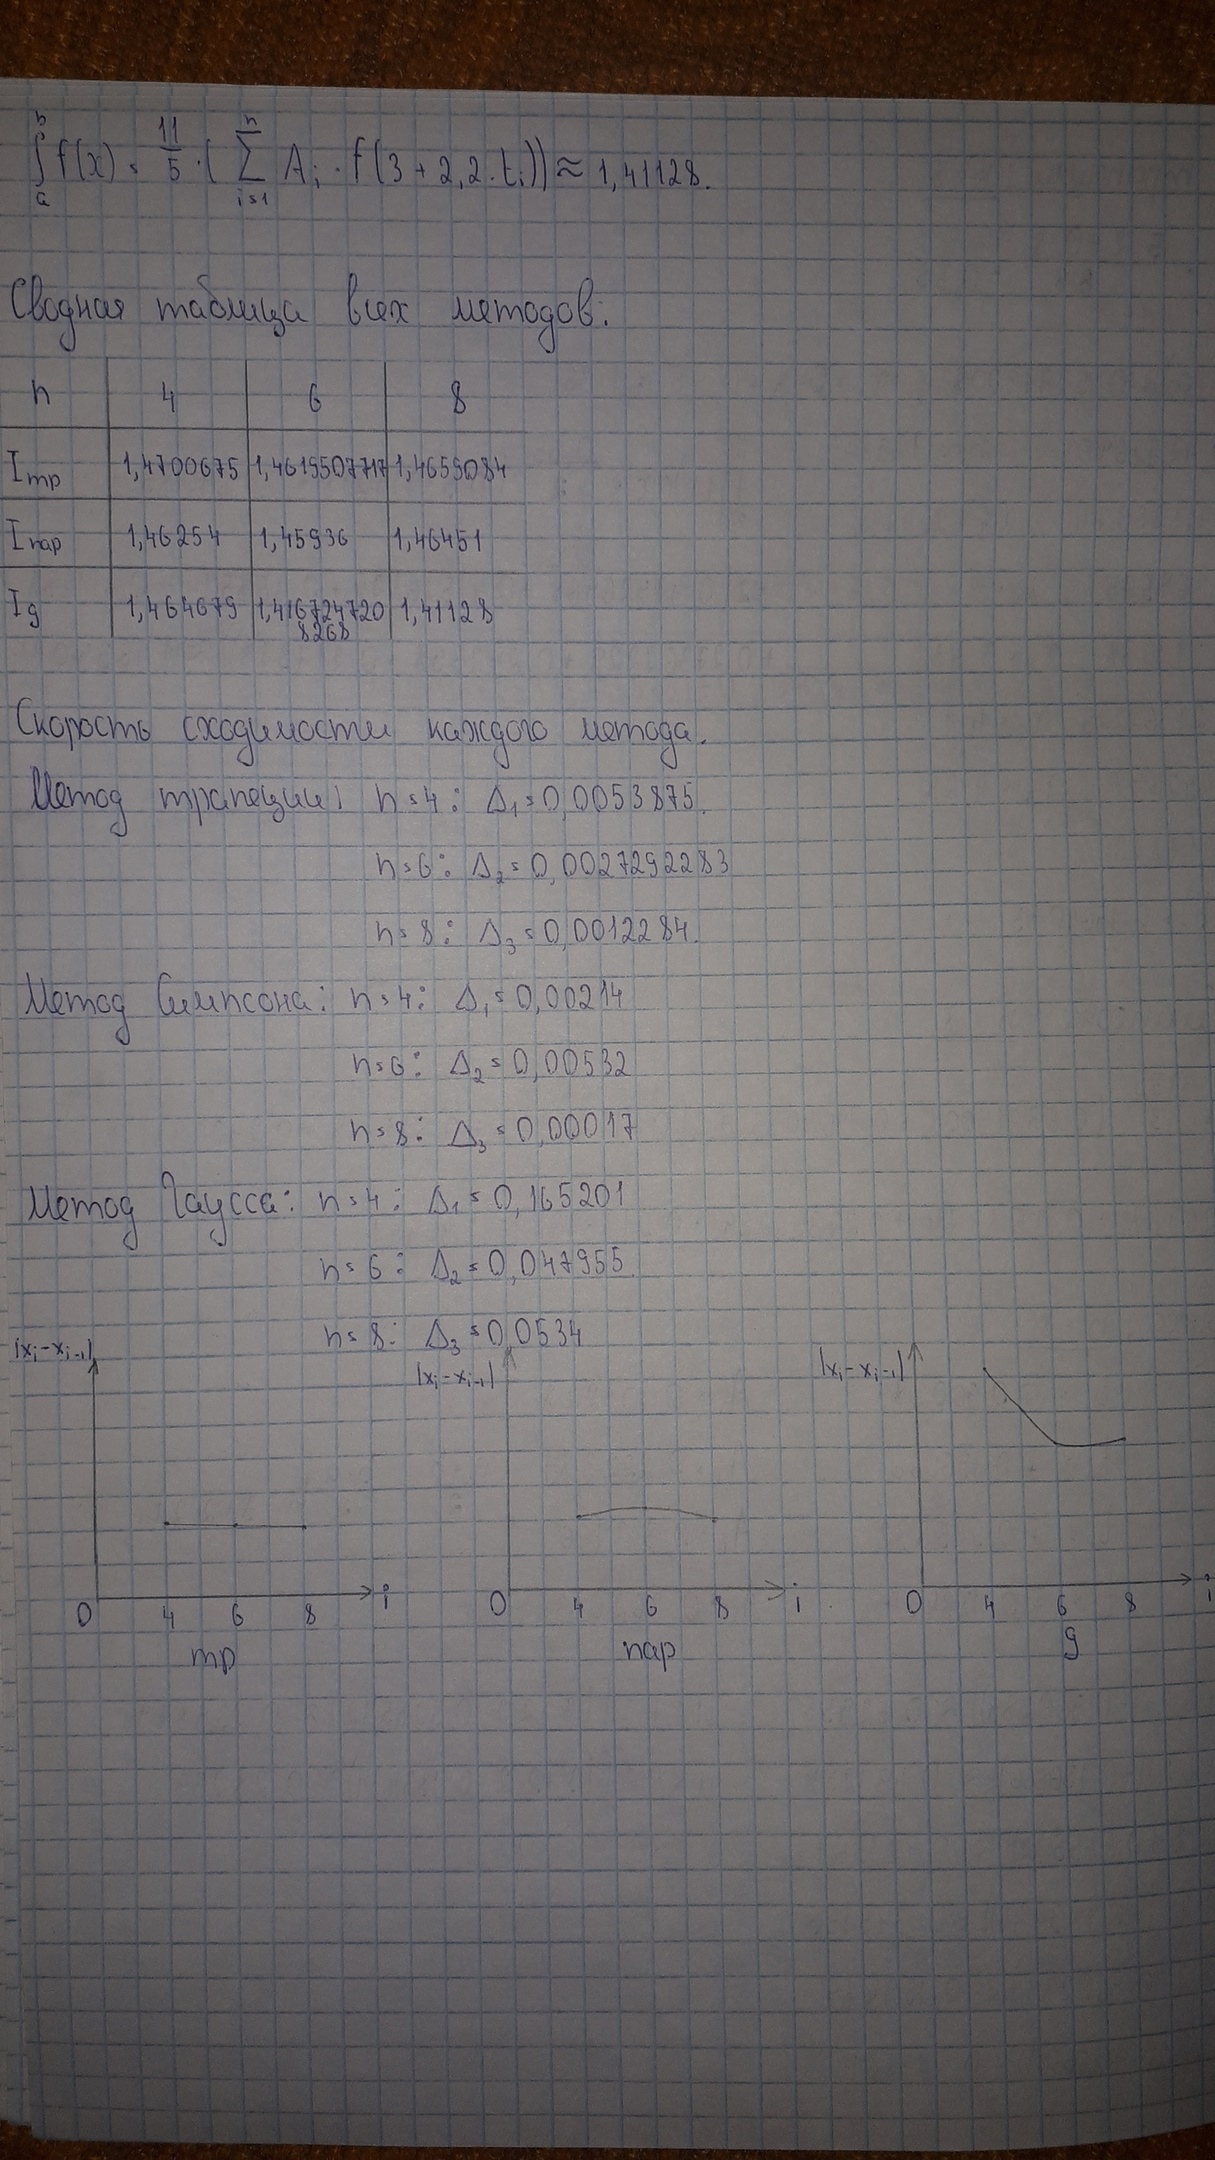 b
∫ f(x) = 11/5 · ( n Σ i=1 A_i · f(3 + 2,2 · t_i)) ≈ 1,41128.
a
Сводная таблица всех методов:
n 4 6 8
I_тр 1,4700675 1,4619507717 1,4659084
I_пар 1,46254 1,45936 1,46451
I_g 1,464679 1,416724720 8268 1,41128
Скорость сходимости каждого метода.
Метод трапеции: n=4: Δ₁=0,0053875.
n=6: Δ₂=0,0027292283
n=8: Δ₃=0,0012284.
Метод Симпсона: n=4: Δ₁=0,00214
n=6: Δ₂=0,00532
n=8: Δ₃=0,00017
Метод Гаусса: n=4: Δ₁=0,165201
n=6: Δ₂=0,047955
n=8: Δ₃=0,0534
|x_i-x_{i-1}| |x_i-x_{i-1}| |x_i-x_{i-1}|
0 4 6 8 i
тр
0 4 6 8 i
пар
0 4 6 8 i
g